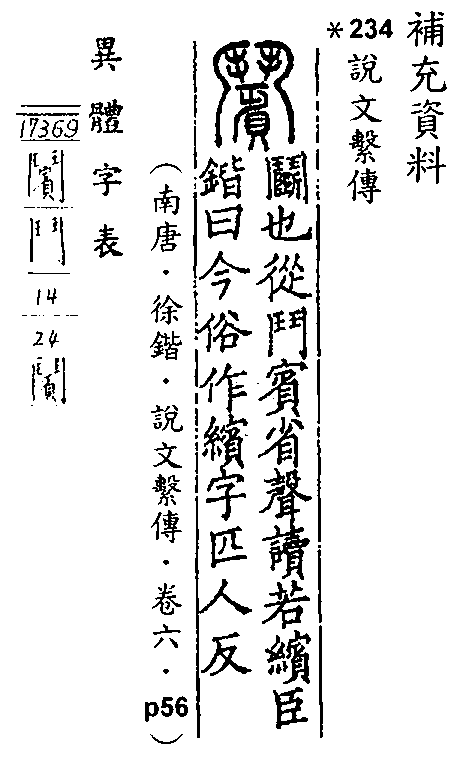 補充資料
*234
說文繫傳
鬭也從鬥賓省聲讀若繽臣
鍇曰今俗作繽字匹人反
（南唐．徐鍇．說文繫傳．卷六．p56）
異體字表
17369
鬥
14
24